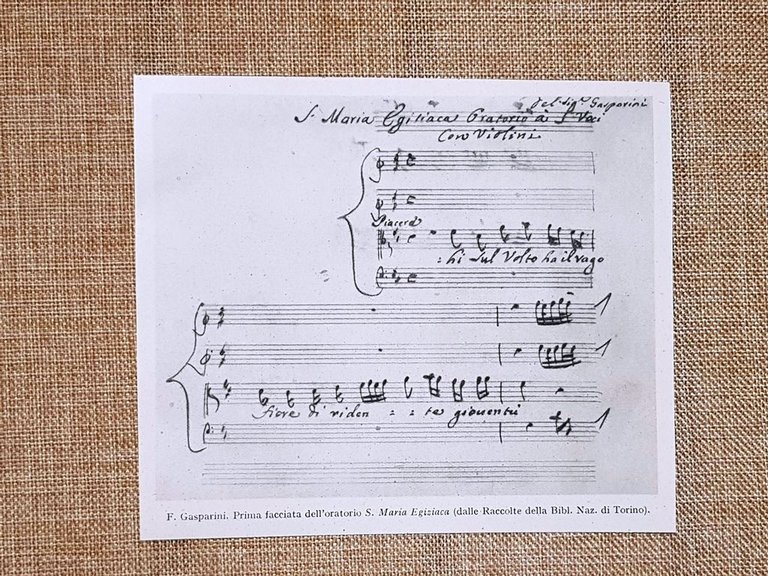 del Sig.r Gasparini
S. Maria Egitiaca Oratorio à 5 Voci
Con Violini
Piacere
: hi sul Volto ha il vago
fiore di riden : : te gioventù
F. Gasparini. Prima facciata dell'oratorio S. Maria Egiziaca (dalle Raccolte della Bibl. Naz. di Torino).